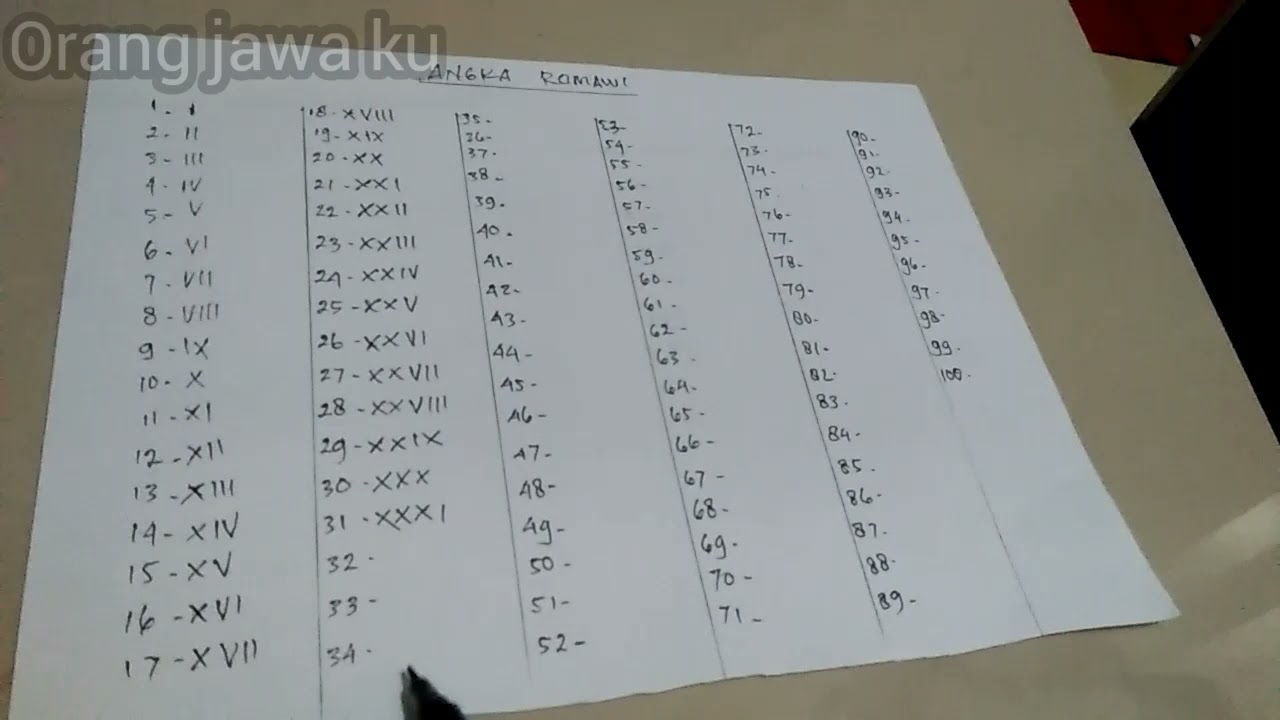 Orang jawa ku
ANGKA ROMAWI
1. I
2- II
3- III
4- IV
5- V
6- VI
7- VII
8- VIII
9- IX
10- X
11- XI
12-XII
13-XIII
14-XIV
15-XV
16-XVI
17-XVII
18-XVIII
19-XIX
20-XX
21-XXI
22-XXII
23-XXIII
24-XXIV
25-XXV
26-XXVI
27-XXVII
28-XXVIII
29-XXIX
30-XXX
31-XXXI
32-
33-
34-
35-
36-
37-
38-
39-
40-
41-
42-
43-
44-
45-
46-
47-
48-
49-
50-
51-
52-
53-
54-
55-
56-
57-
58-
59-
60-
61-
62-
63-
64-
65-
66-
67-
68-
69-
70-
71-
72-
73-
74-
75-
76-
77-
78-
79-
80-
81-
82-
83-
84-
85-
86-
87-
88-
89-
90-
91-
92-
93-
94-
95-
96-
97-
98-
99-
100-